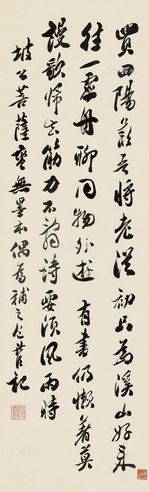 買田陽羨吾將老從初只為溪山好來
往一虛舟聊同物外遊 有書仍懶著莫
謾歌歸去筋力不辭詩要須風雨時
坡公菩薩蠻無墨本偶為補之 記